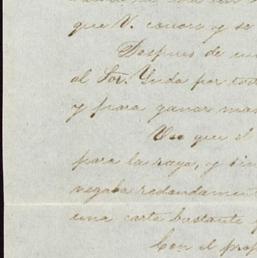 que V. conoce y se
Despues de
al Sor. Unda por
y para ganar
Veo que el
para la raya, y
negaba redondamen
una carta bastante
Con el prop